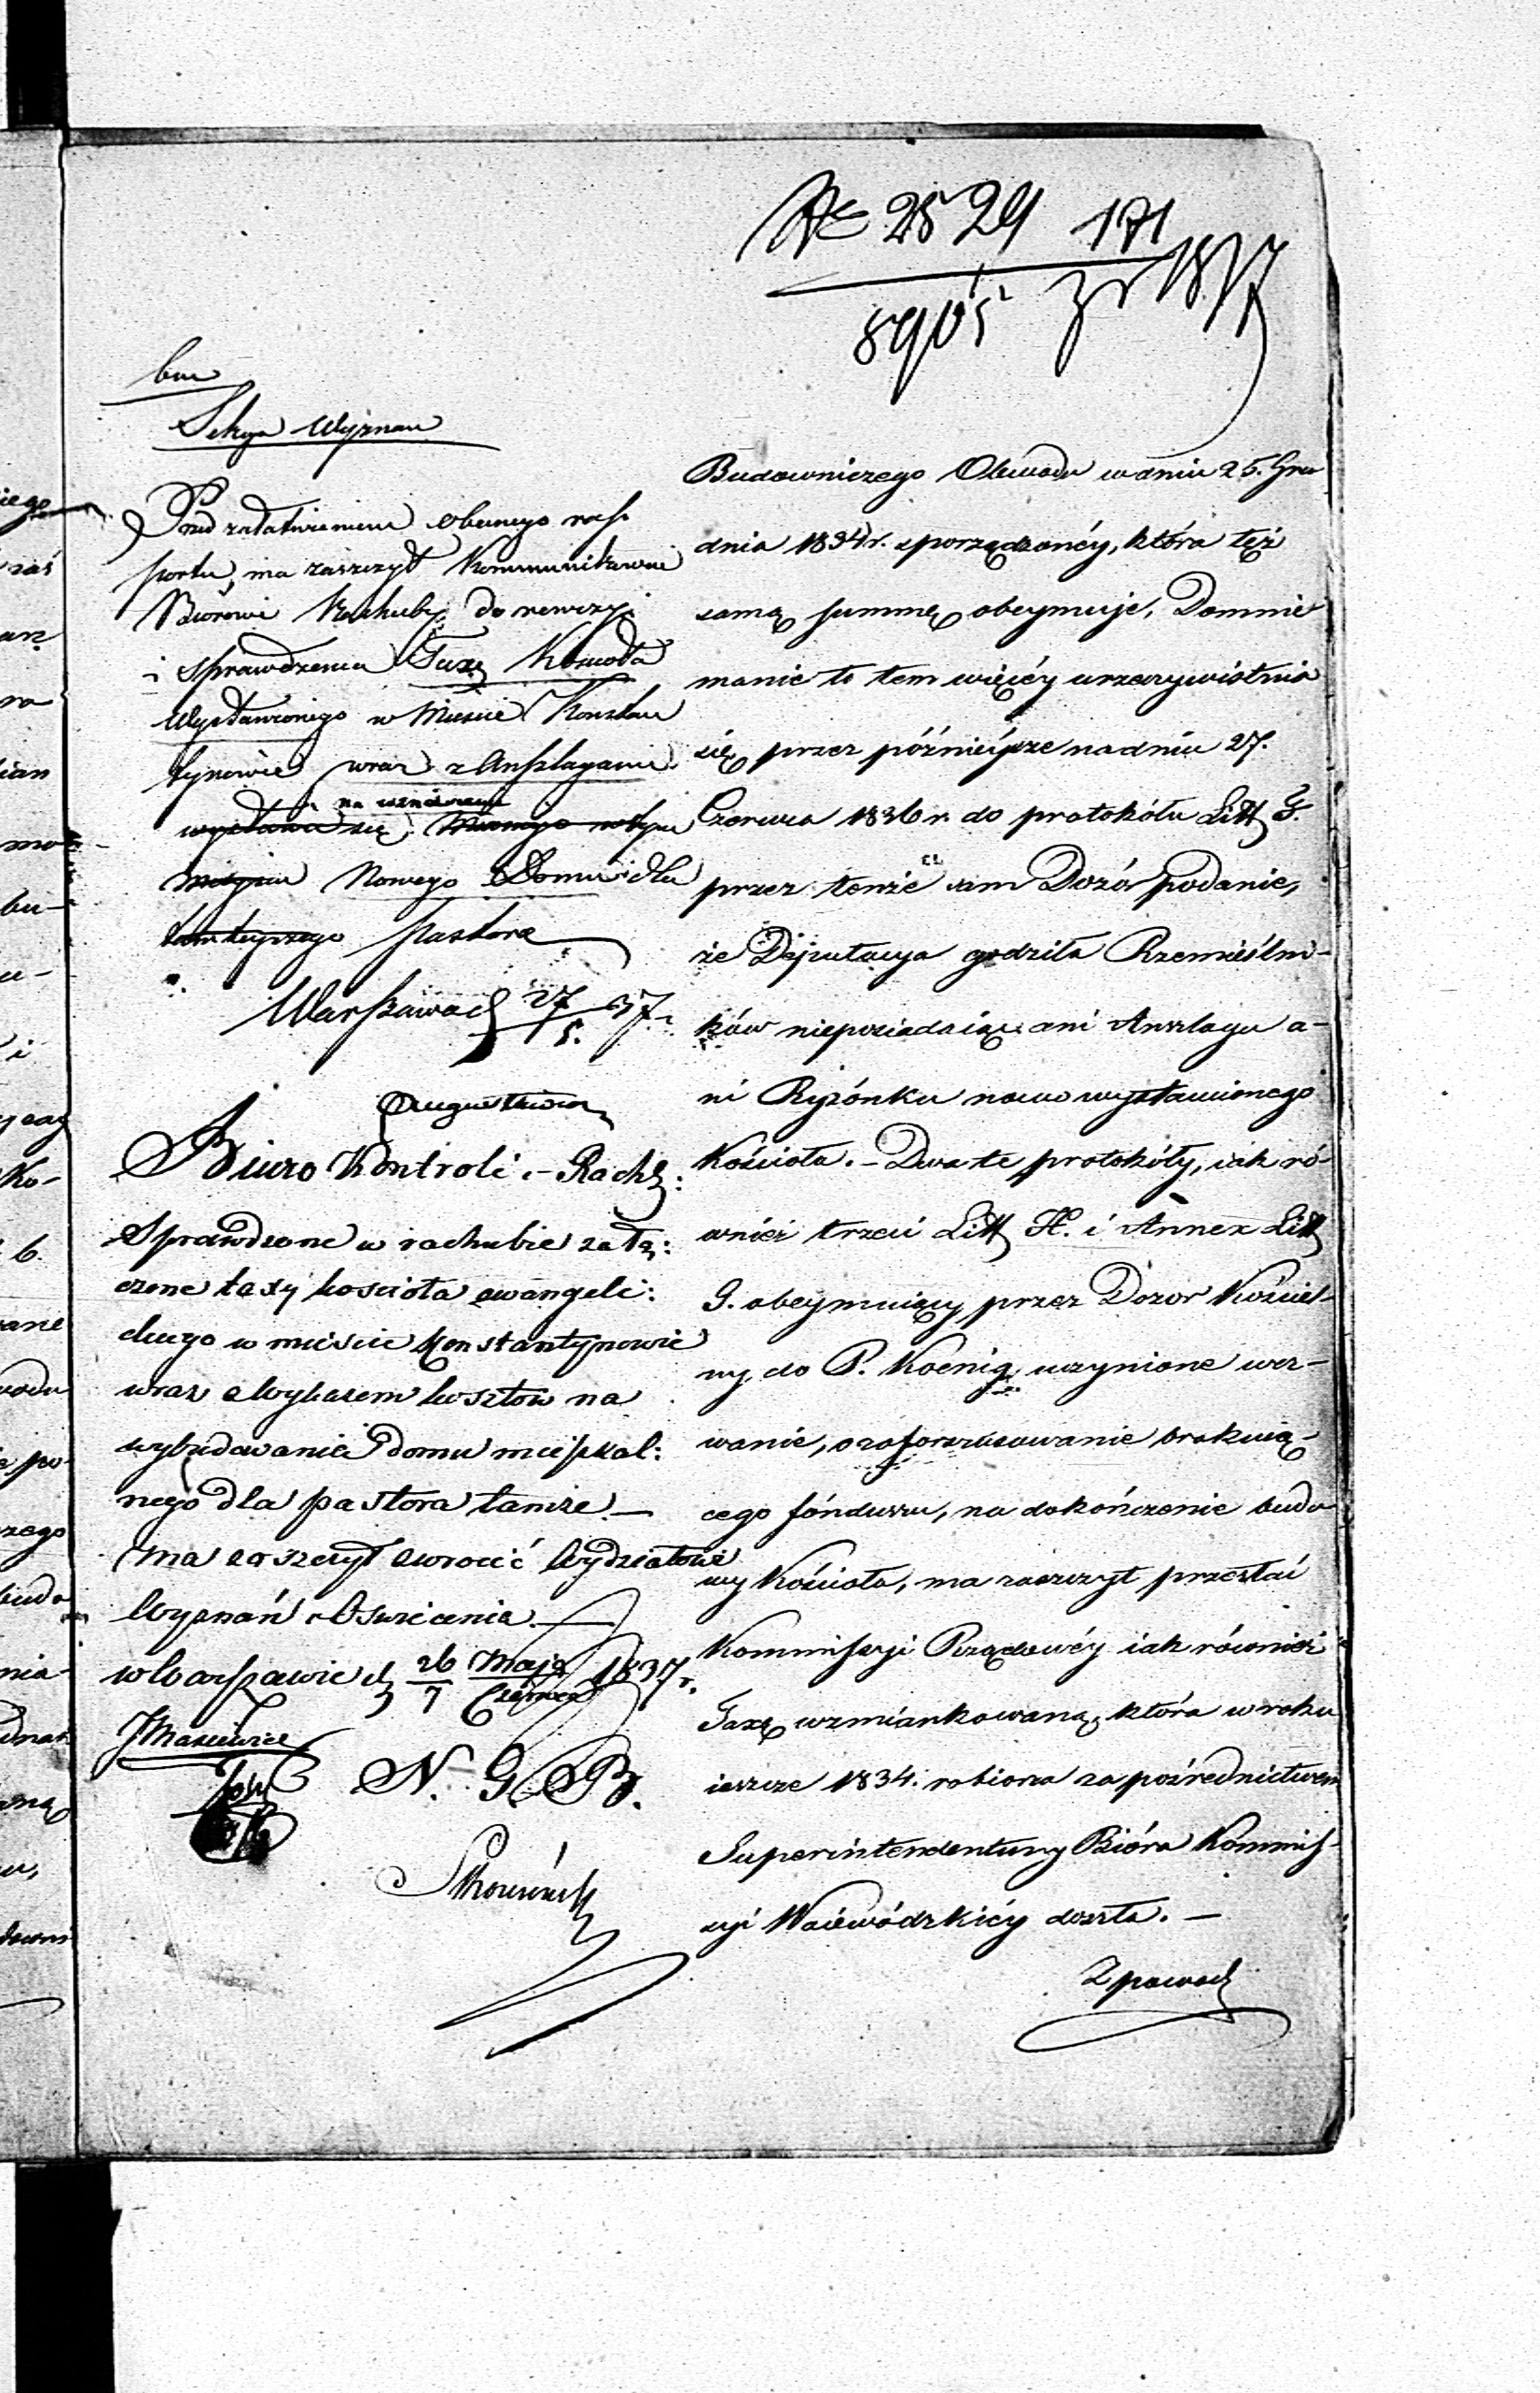 № 2529 171
8905 z r 1837
bm
Sekcya Wyznań
Przed załatwieniem obecnego rap
portu, ma zaszczyt kommunikować
Biorowi Rachuby, do rewizyi
i sprawdzenia Taxę Kościoła
wystawionego w Mieście Konstan
tynowie wraz z Anszlagami
na wzniesienie
Nowego Domu dla
tamtejszego pastora
Warszawa d 27/5. 37.
Augustowicz
Biuro Kontroli i Rach:
Sprawdzone w rachubie załą:
czone taxy kościoła ewangeli:
ckiego w mieście Konstantynowie
wraz z wykazem kosztów na
wybudowanie domu mieszkal:
nego dla pastora tamże. —
ma zaszczyt zwrócić Wydziałowi
Wyznań i Oświecenia. —
w Warszawie d 26/7 Maja/Czerwca 1837 r.
N. G. B.
Budowniczego Obwodu w dniu 25. Gru
dnia 1834 r. sporządzonéy, która też
samą summę obeymuje, Domnie
manie to tem więcéy urzeczywistnia
się przez późnieysze na dniu 27.
Czerwca 1836 r. do protokółu Litt G.
przez tenże sam Dozór podanie,
że Deputacya godziła Rzemieślni-
ków nieposiadaiąc ani Anszlagu a-
ni Ryzónku nowo wystawionego
Kościoła. – Dwa te protokóły, iak ró-
wnież trzeci Litt H. i Annex Litt
G. obeymuiący przez Dozor Kościel-
ny do P. Koenig uczynione wez-
wanie, o zaforszusowanie brakuią-
cego fónduszu, na dokończenie budo
wy Kościoła, ma zaszczyt przesłać
Kommissyi Rządowéy iak również
Taxę wzmiankowaną, która w roku
ieszcze 1834. robiona za pośrednictwem
Superintendentury Bióra Kommis-
syi Woiewódzkiéy doszła. —
Z powod